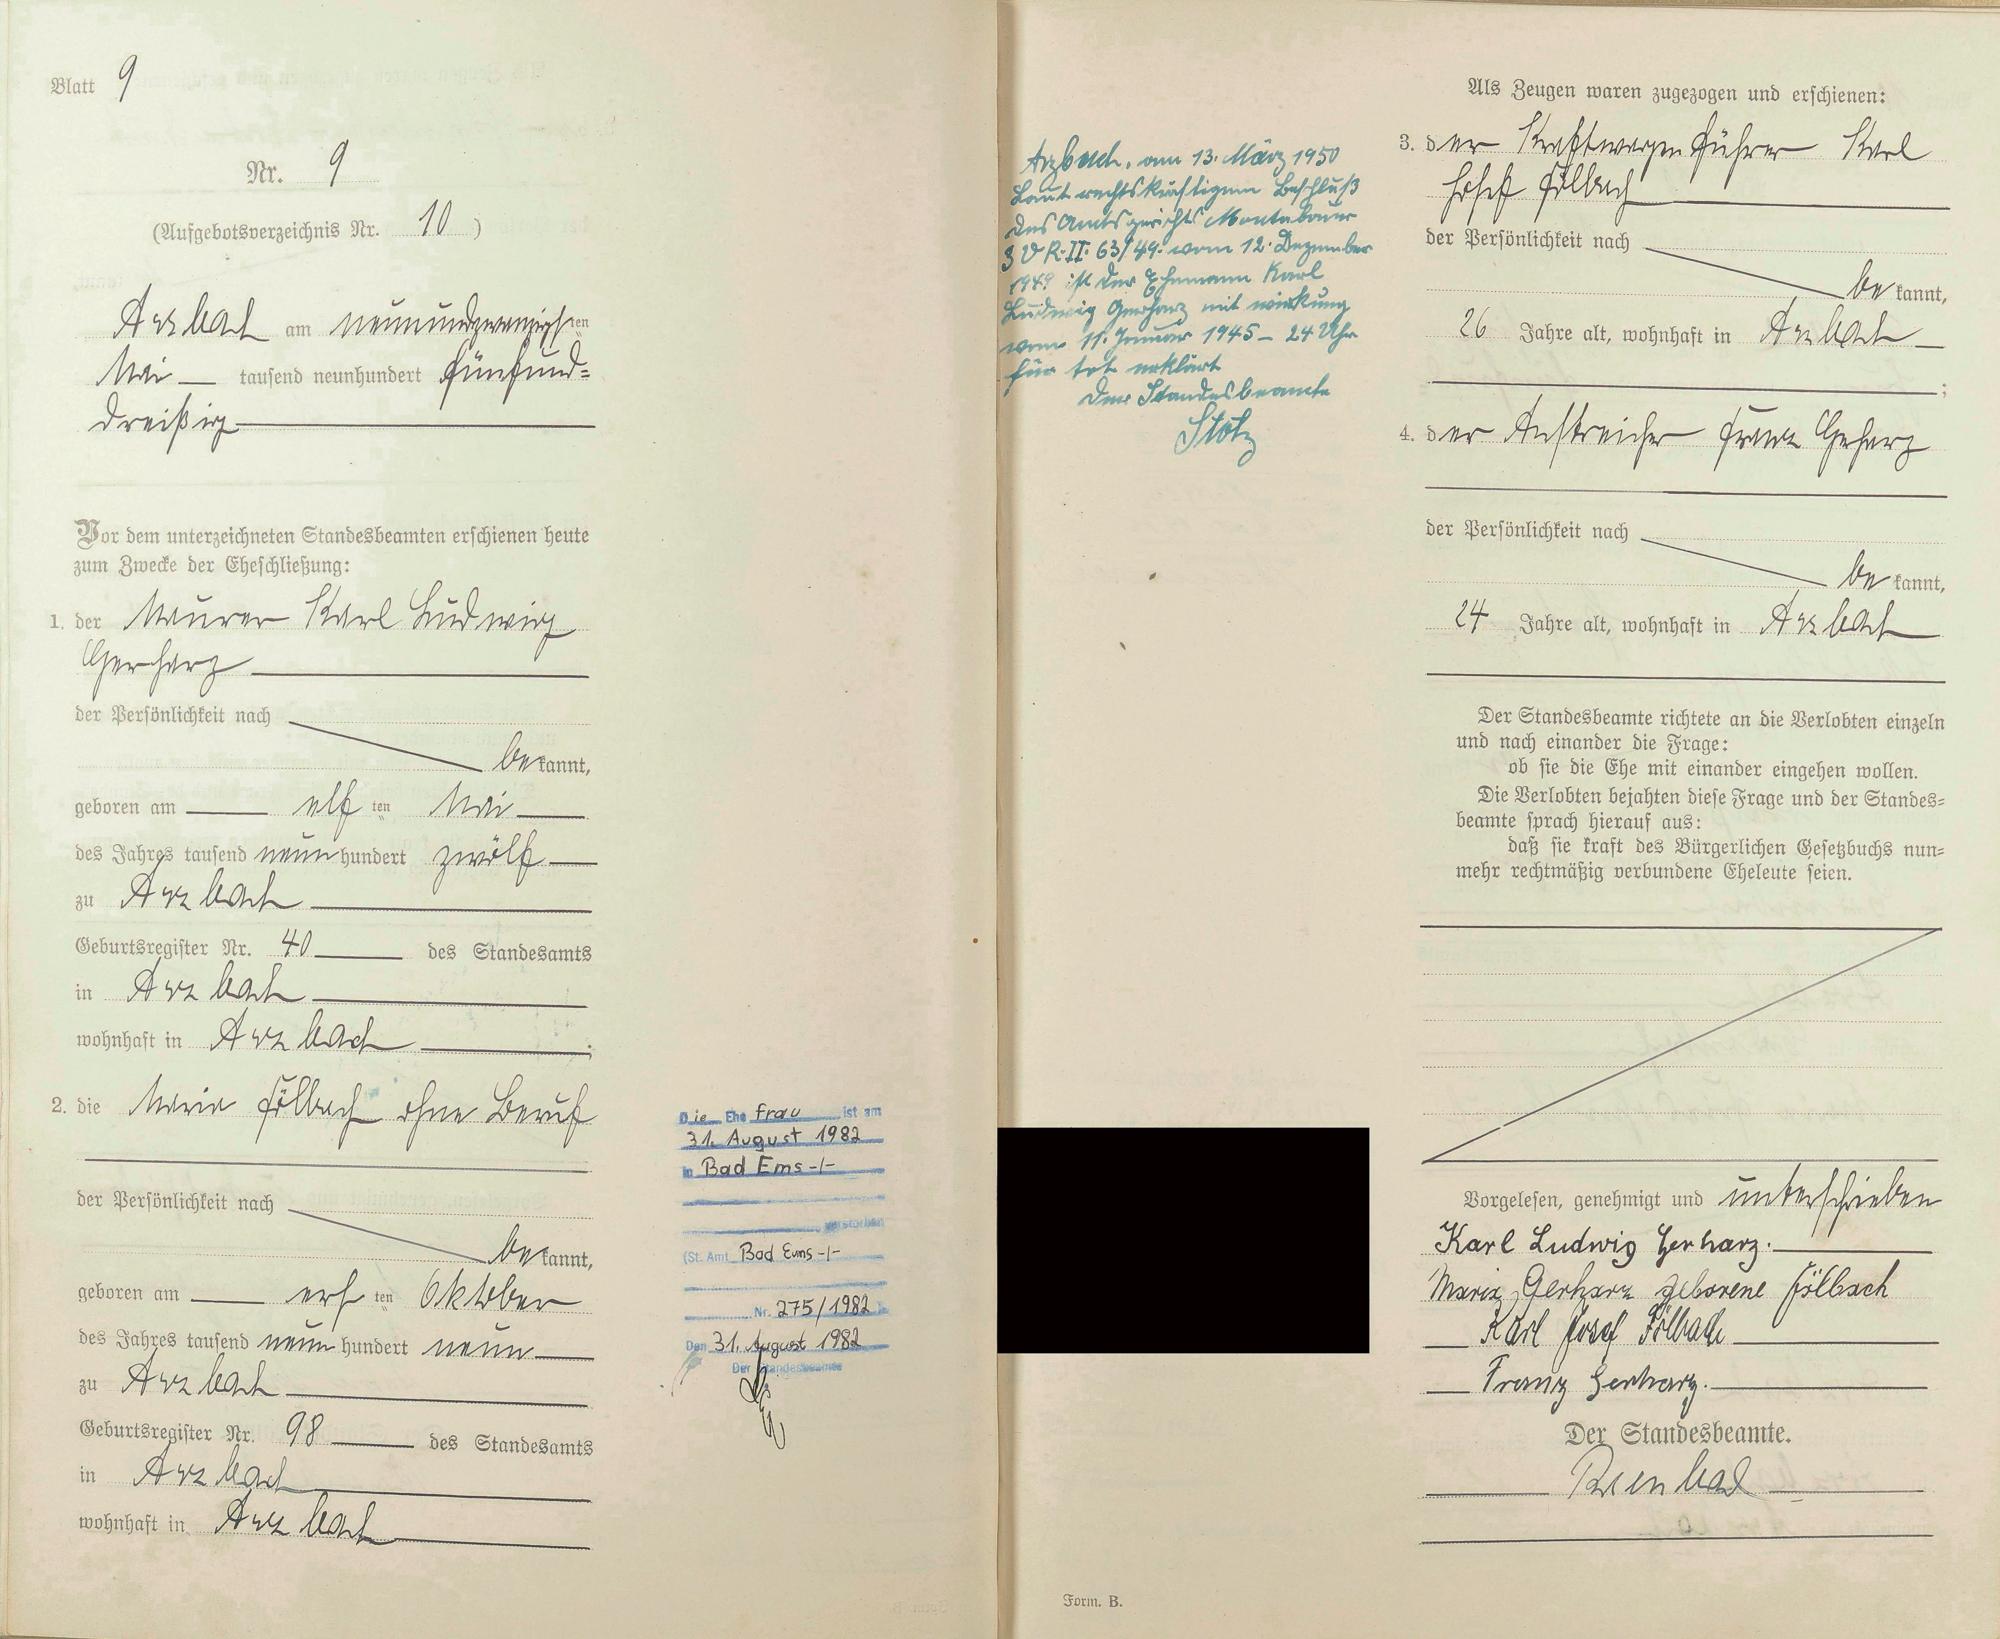 Blatt 9
Nr. 9
(Aufgebotsverzeichnis Nr. 10 )
Arzbach am neunundzwanzigsten
Mai tausend neunhundert fünfund-
dreißig
Vor dem unterzeichneten Standesbeamten erschienen heute
zum Zwecke der Eheschließung:
1. der Maurer Karl Ludwig
Gerharz
der Persönlichkeit nach
bekannt,
geboren am elften Mai
des Jahres tausend neunhundert zwölf
zu Arzbach
Geburtsregister Nr. 40 des Standesamts
in Arzbach
wohnhaft in Arzbach ;
2. die Maria Föllbach ohne Beruf
der Persönlichkeit nach
bekannt,
geboren am ersten Oktober
des Jahres tausend neunhundert neun
zu Arzbach
Geburtsregister Nr. 98 des Standesamts
in Arzbach
wohnhaft in Arzbach
Die Ehefrau ist am
31. August 1982
in Bad Ems -/-
verstorben
(St. Amt Bad Ems -/-
Nr. 275/1982
Den 31. August 1982
Der Standesbeamte
Arzbach, am 13. März 1950
Laut rechtskräftigem Beschluß
des Amtsgerichts Montabaur
3 V R. II. 63/49. vom 12. Dezember
1949 ist der Ehemann Karl
Ludwig Gerharz mit wirkung
vom 11. Januar 1945 – 24 Uhr
für tot erklärt
Der Standesbeamte
Stotz
Form. B.
Als Zeugen waren zugezogen und erschienen:
3. der Kraftwagenführer Karl
Josef Föllbach
der Persönlichkeit nach
bekannt,
26 Jahre alt, wohnhaft in Arzbach
;
4. der Anstreicher Franz Gerharz
der Persönlichkeit nach
bekannt,
24 Jahre alt, wohnhaft in Arzbach
Der Standesbeamte richtete an die Verlobten einzeln
und nach einander die Frage:
ob sie die Ehe mit einander eingehen wollen.
Die Verlobten bejahten diese Frage und der Standes-
beamte sprach hierauf aus:
daß sie kraft des Bürgerlichen Gesetzbuchs nun-
mehr rechtmäßig verbundene Eheleute seien.
Vorgelesen, genehmigt und unterschrieben
Karl Ludwig Gerharz.
Maria Gerharz geborene Föllbach
Karl Josef Föllbach
Franz Gerharz.
Der Standesbeamte.